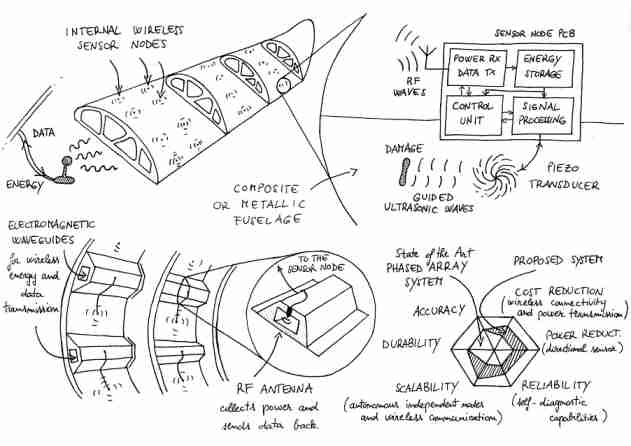 INTERNAL WIRELESS
SENSOR NODES
DATA
ENERGY
COMPOSITE
OR METALLIC
FUSELAGE
SENSOR NODE PCB
RF
WAVES
POWER RX
DATA TX
ENERGY
STORAGE
CONTROL
UNIT
SIGNAL
PROCESSING
DAMAGE
GUIDED
ULTRASONIC WAVES
PIEZO
TRANSDUCER
ELECTROMAGNETIC
WAVEGUIDES
for wireless
energy and
data
transmission
TO THE
SENSOR NODE
RF ANTENNA
collects power and
sends data back
State of the Art
PHASED ARRAY
SYSTEM
PROPOSED SYSTEM
COST REDUCTION
(wireless connectivity
and power transmission)
ACCURACY
POWER REDUCT.
(directional sensor)
DURABILITY
SCALABILITY
(autonomous independent nodes
and wireless communication)
RELIABILITY
(self-diagnostic
capabilities)